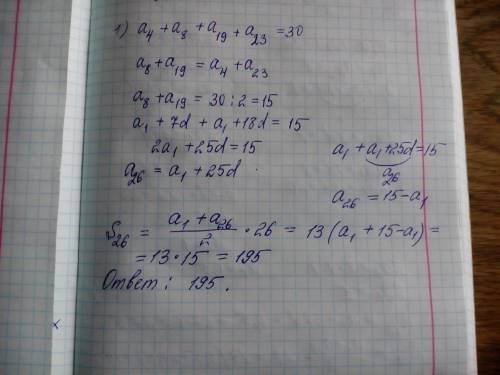 1) a₄ + a₈ + a₁₉ + a₂₃ = 30
a₈ + a₁₉ = a₄ + a₂₃
a₈ + a₁₉ = 30 : 2 = 15
a₁ + 7d + a₁ + 18d = 15
2a₁ + 25d = 15
a₂₆ = a₁ + 25d
a₁ + a₁ + 25d = 15
a₂₆
a₂₆ = 15 - a₁
S₂₆ = (a₁ + a₂₆)/2 · 26 = 13(a₁ + 15 - a₁) =
= 13 · 15 = 195
Ответ: 195.